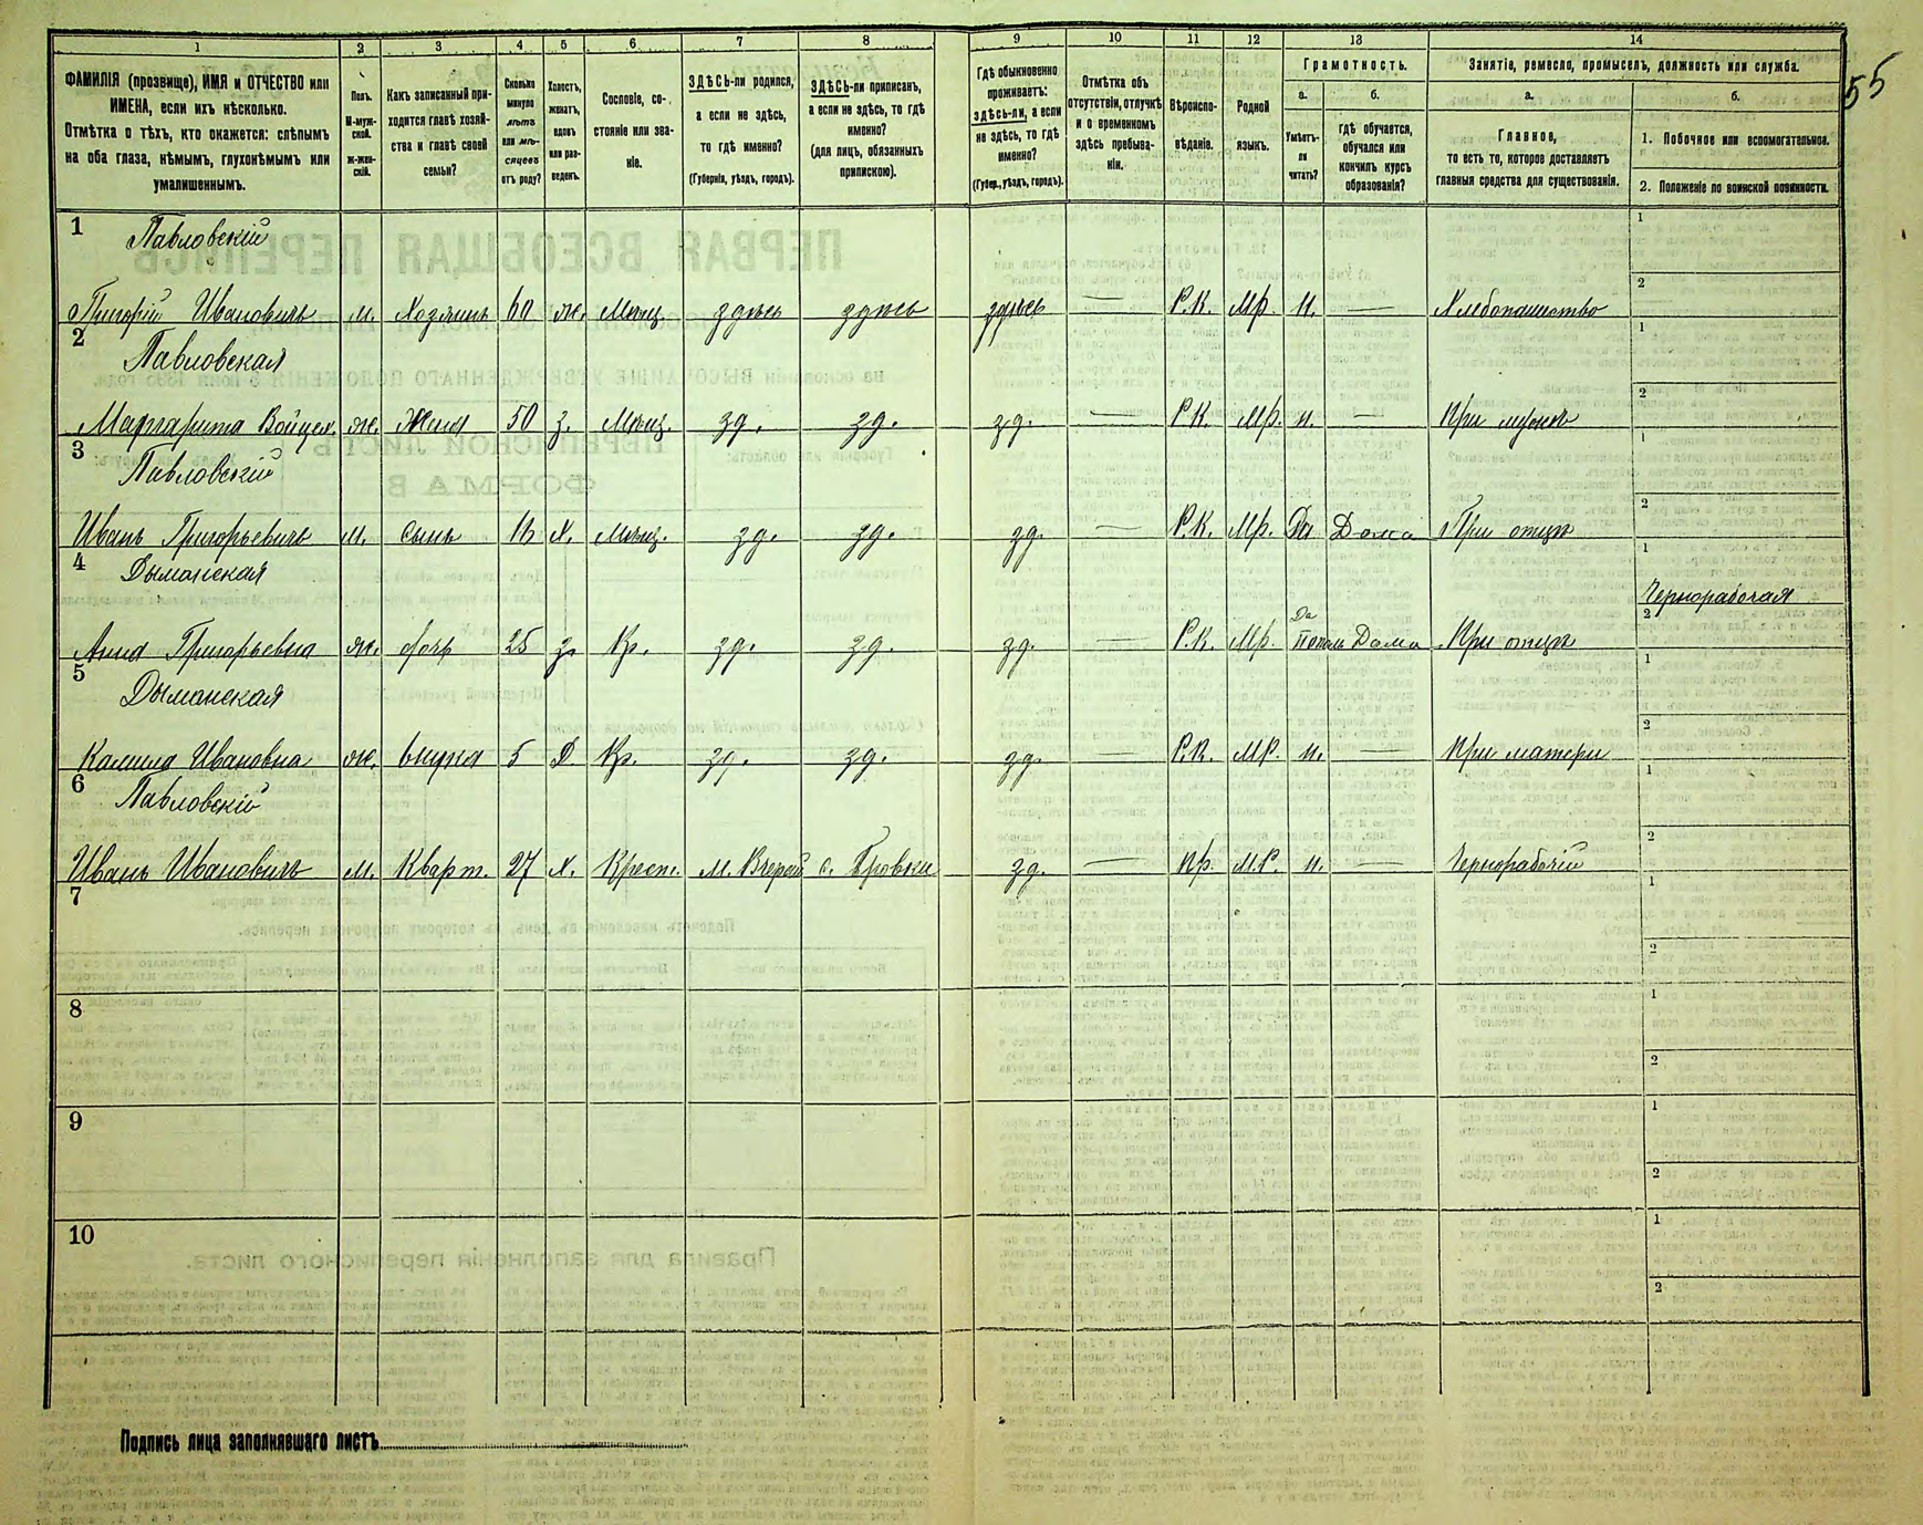 1 2 3 4 5 6 7 8 9 10 11 12 13 14
ФАМИЛІЯ (прозвище), ИМЯ и ОТЧЕСТВО или
ИМЕНА, если ихъ нѣсколько.
Отмѣтка о тѣхъ, кто окажется: слѣпымъ
на оба глаза, нѣмымъ, глухонѣмымъ или
умалишеннымъ.
Полъ.
М-муж-
ской.
Ж-жен-
скій.
Какъ записанный при-
ходится главѣ хозяй-
ства и главѣ своей
семьи?
Сколько
минуло
лѣтъ
или мѣ-
сяцевъ
отъ роду?
Холостъ,
женатъ,
вдовъ
или раз-
веденъ.
Сословіе, со-
стояніе или зва-
ніе.
ЗДѢСЬ-ли родился,
а если не здѣсь,
то гдѣ именно?
(Губернія, уѣздъ, городъ).
ЗДѢСЬ-ли приписанъ,
а если не здѣсь, то гдѣ
именно?
(для лицъ, обязанныхъ
припискою).
Гдѣ обыкновенно
проживаетъ:
здѣсь-ли, а если
не здѣсь, то гдѣ
именно?
(Губер., уѣздъ, городъ).
Отмѣтка объ
отсутствіи, отлучкѣ
и о временномъ
здѣсь пребыва-
ніи.
Вѣроиспо-
вѣданіе.
Родной
языкъ.
Грамотность.
а.
Умѣетъ-
ли
читать?
б.
Гдѣ обучается,
обучался или
кончилъ курсъ
образованія?
Занятіе, ремесло, промыселъ, должность или служба.
а.
Главное,
то есть то, которое доставляетъ
главныя средства для существованія.
б.
1. Побочное или вспомогательное.
2. Положеніе по воинской повинности.
55
1 Павловскій 1
2
Григорій Ивановичъ м. Хозяинъ 60 ж. Мѣщ. здѣсь здѣсь здѣсь — Р.К. Мр. н. — Хлебопашество
2 Павловская 1
2
Маргарита Войцех. ж. Жена 50 з. Мѣщ. зд. зд. зд. — Р.К. Мр. н. — При мужѣ
3 Павловскій 1
2
Иванъ Григорьевичъ м. сынъ х. Мѣщ. зд. зд. зд. — Р.К. Мр. Да Дома При отцѣ
4 Дыманская 1
Чернорабочая
2
Анна Григорьевна ж. дочь 25 з. Кр. зд. зд. зд. — Р.К. Мр. Да Дома При отцѣ
5 Дыманская 1
2
Камила Ивановна ж. внука 5 Д Кр. зд. зд. зд. — Р.К. МР. н. — При матери
6 Павловскій 1
2
Иванъ Ивановичъ м. Кварт. 27 х. Крест. м. с. Бровки зд. — Пр. М.Р. н. — Чернорабочій
7 1
2
8 1
2
9 1
2
10 1
2
Подпись лица заполнявшаго листъ